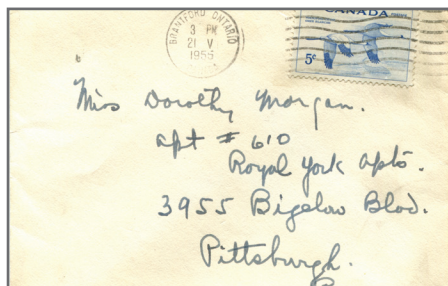 BRANTFORD ONTARIO
3 PM
21 V
1955
CANADA
5¢
Miss Dorothy Morgan.
Apt # 610
Royal York Apts.
3955 Bigelow Blvd.
Pittsburgh.